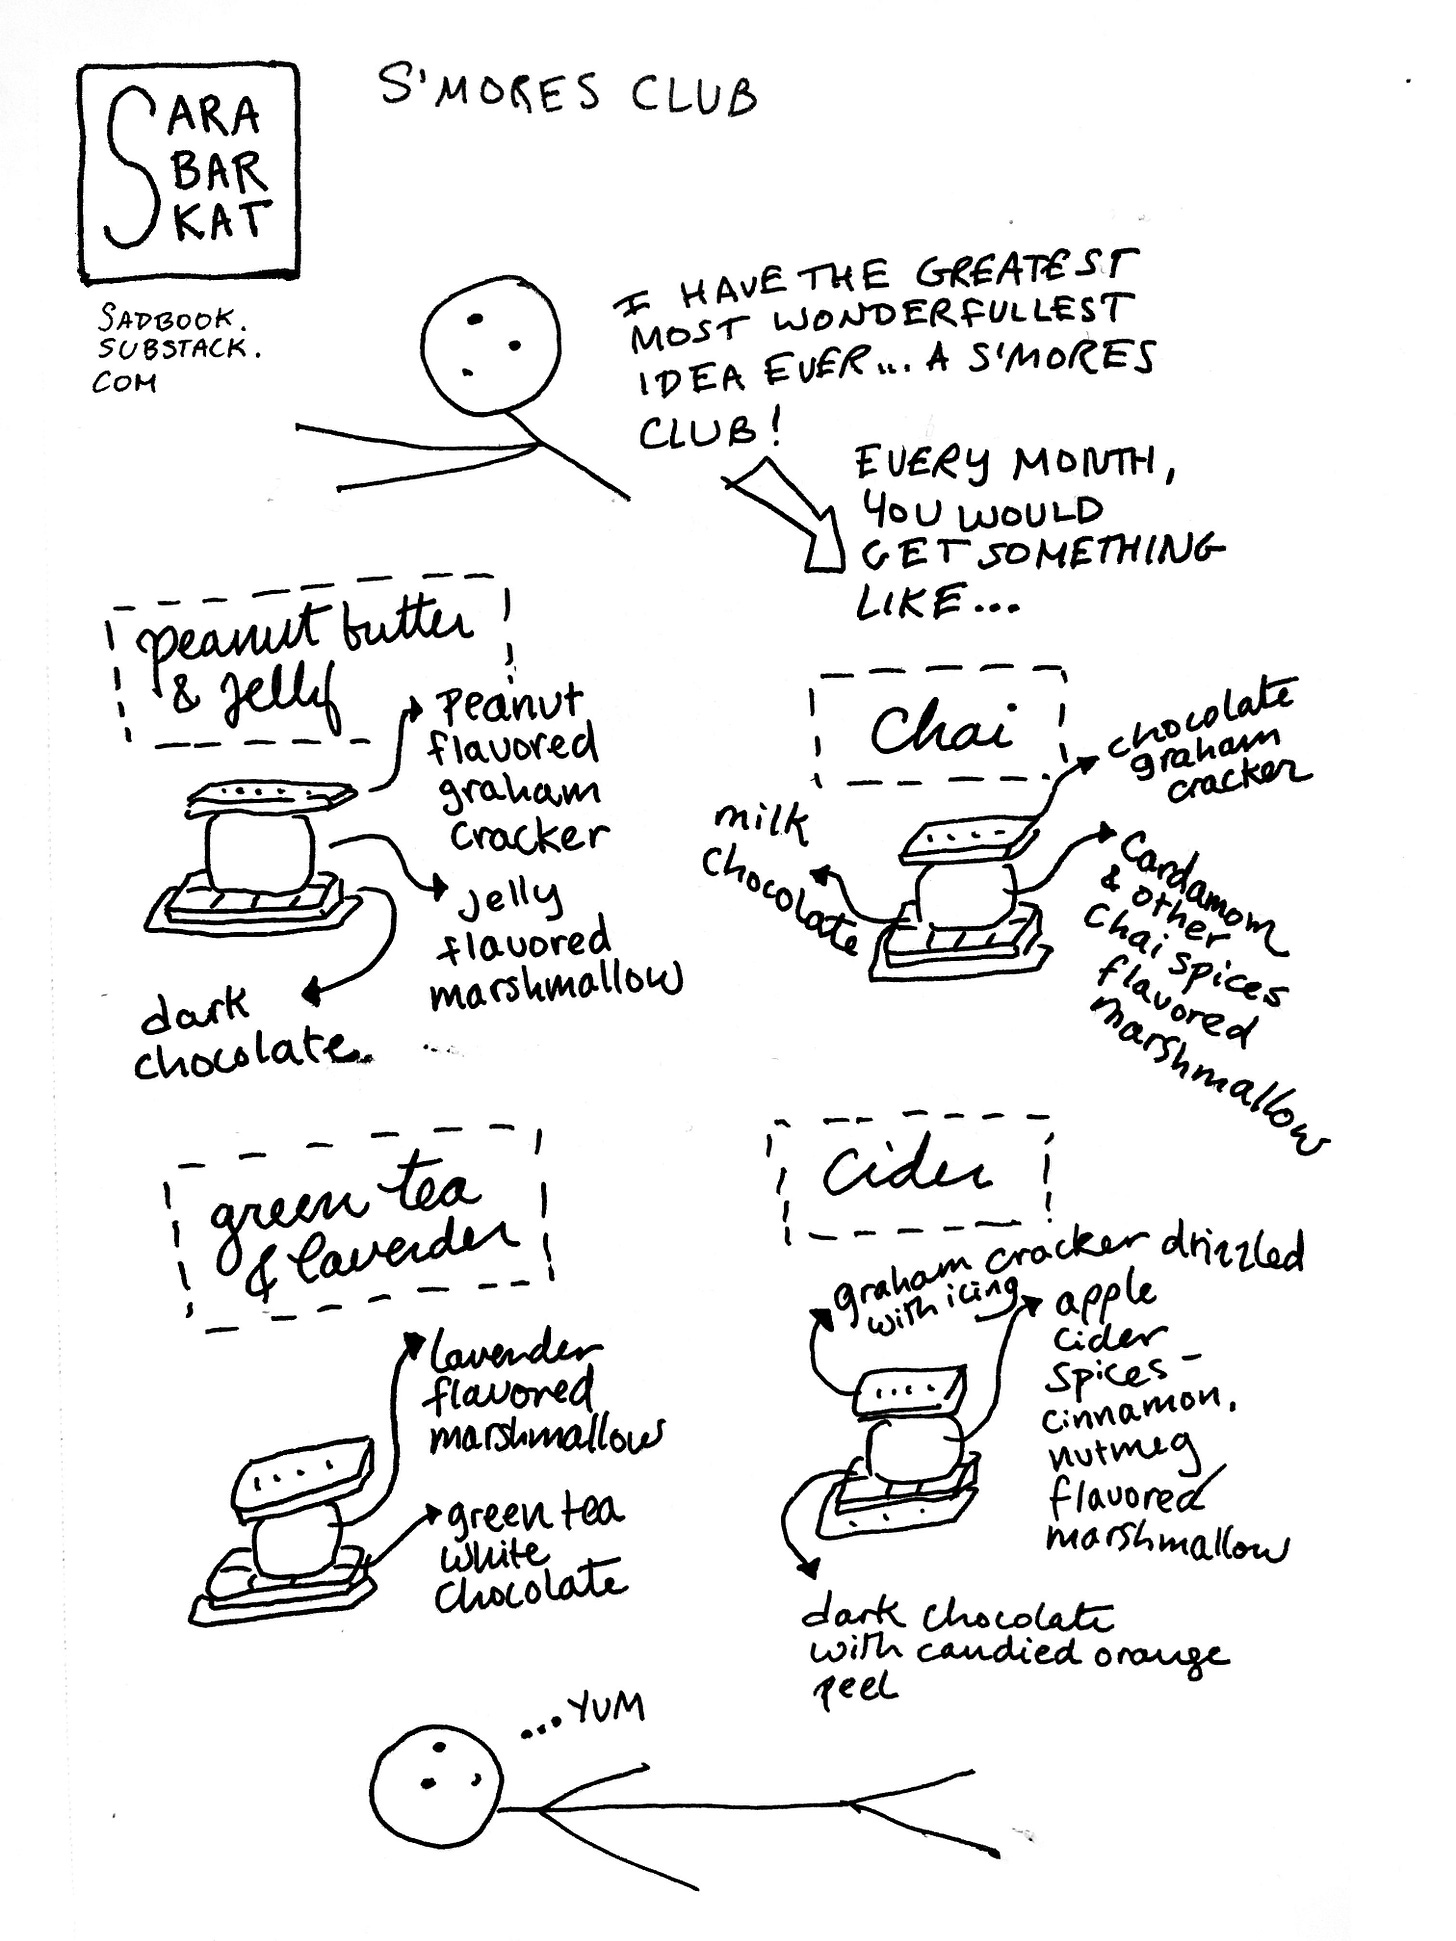 SARA
BAR
KAT
SADBOOK.
SUBSTACK.
COM
S'MORES CLUB
I HAVE THE GREATEST
MOST WONDERFULLEST
IDEA EVER... A S'MORES
CLUB!
EVERY MONTH,
YOU WOULD
GET SOMETHING
LIKE...
peanut butter
& jelly
Peanut
flavored
graham
cracker
Jelly
flavored
marshmallow
dark
chocolate.
Chai
chocolate
graham
cracker
milk
chocolate
Cardamom
& other
chai spices
flavored
marshmallow
green tea
& lavender
lavender
flavored
marshmallow
green tea
white
chocolate
Cider
graham cracker drizzled
with icing
apple
cider
spices-
cinnamon,
nutmeg
flavored
marshmallow
dark chocolate
with candied orange
peel
...YUM